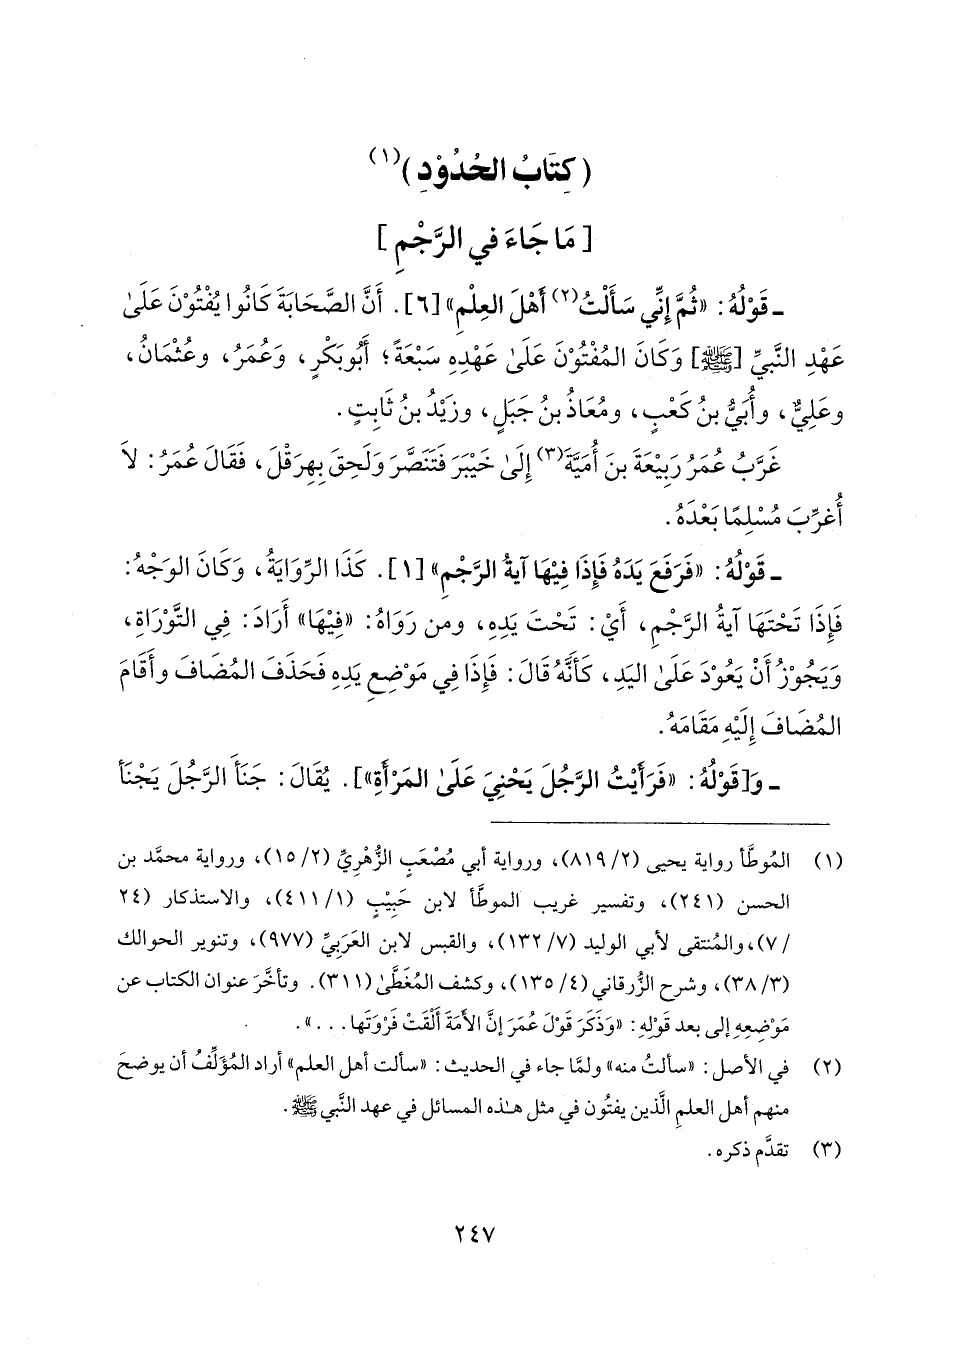 ( كِتَابُ الحُدُوْدِ )(١)
[ مَا جَاءَ في الرَّجْمِ ]
ـ قَوْلُهُ: «ثُمَّ إِنِّي سَأَلْتُ(٢) أَهْلَ العِلْمِ» [٦]. أَنَّ الصَّحَابَةَ كَانُوا يُفْتُوْنَ عَلَىٰ
عَهْدِ النَّبِيِّ [ﷺ] وَكَانَ المُفْتُوْنَ عَلَىٰ عَهْدِهِ سَبْعَةً؛ أَبُوبَكْرٍ، وَعُمَرُ، وعُثْمَانُ،
وعَلِيٌّ، وأُبَيُّ بنُ كَعْبٍ، ومُعَاذُ بنُ جَبَلٍ، وزَيْدُ بنُ ثَابِتٍ.
غَرَّبُ عُمَرُ رَبِيْعَةَ بنَ أُمَيَّةَ(٣) إِلَىٰ خَيْبَرَ فَتَنَصَّرَ وَلَحِقَ بِهِرَقْلَ، فَقَالَ عُمَرُ: لاَ
أُغرِّبَ مُسْلِمًا بَعْدَهُ.
ـ قَوْلُهُ: «فَرَفَعَ يَدَهُ فَإِذَا فِيْهَا آيَةُ الرَّجْمِ» [١]. كَذَا الرِّوَايَةُ، وَكَانَ الوَجْهُ:
فَإِذَا تَحْتَهَا آيَةُ الرَّجْمِ، أَيْ: تَحْتَ يَدِهِ، ومن رَوَاهُ: «فِيْهَا» أَرَادَ: فِي التَّوْرَاةِ،
وَيَجُوْزُ أَنْ يَعُوْدَ عَلَىٰ اليَدِ، كَأَنَّهُ قَالَ: فَإِذَا فِي مَوْضِعِ يَدِهِ فَحَذَفَ المُضَافَ وأَقَامَ
المُضَافَ إِلَيْهِ مَقَامَهُ.
ـ وَ[قَوْلُهُ: «فَرَأَيْتُ الرَّجُلَ يَحْنِيَ عَلَىٰ المَرْأَةِ»]. يُقَالَ: جَنَأَ الرَّجُلَ يَجْنَأ
(١) المُوطَّأ رواية يحيى (٢/ ٨١٩)، ورواية أبي مُصْعَبٍ الزُّهْرِيِّ (٢/ ١٥)، ورواية محمَّد بن
الحسن (٢٤١)، وتفسير غريب الموطَّأ لابن حَبِيْبٍ (١/ ٤١١)، والاستذكار (٢٤
/ ٧)،والمُنتقى لأبي الوليد (٧/ ١٣٢)، والقبس لابن العَرَبِيِّ (٩٧٧)، وتنوير الحوالك
(٣/ ٣٨)، وشرح الزُّرقاني (٤/ ١٣٥)، وكشف المُغَطَّىٰ (٣١١). وتأخَّرَ عنوان الكتاب عن
مَوْضِعِهِ إلى بعد قَوْلِهِ: «وَذَكَرَ قَوْلَ عُمَرَ إنَّ الأمَةَ أَلْقَتْ فَرْوَتَها. . .».
(٢) في الأصل: «سألتُ منه» ولمَّا جاء في الحديث: «سألت أهل العلم» أراد المُؤَلِّفُ أن يوضحَ
منهم أهل العلمِ الَّذين يفتُون في مثل هـٰذه المسائل في عهد النَّبي ﷺ.
(٣) تقدَّم ذكره.
٢٤٧